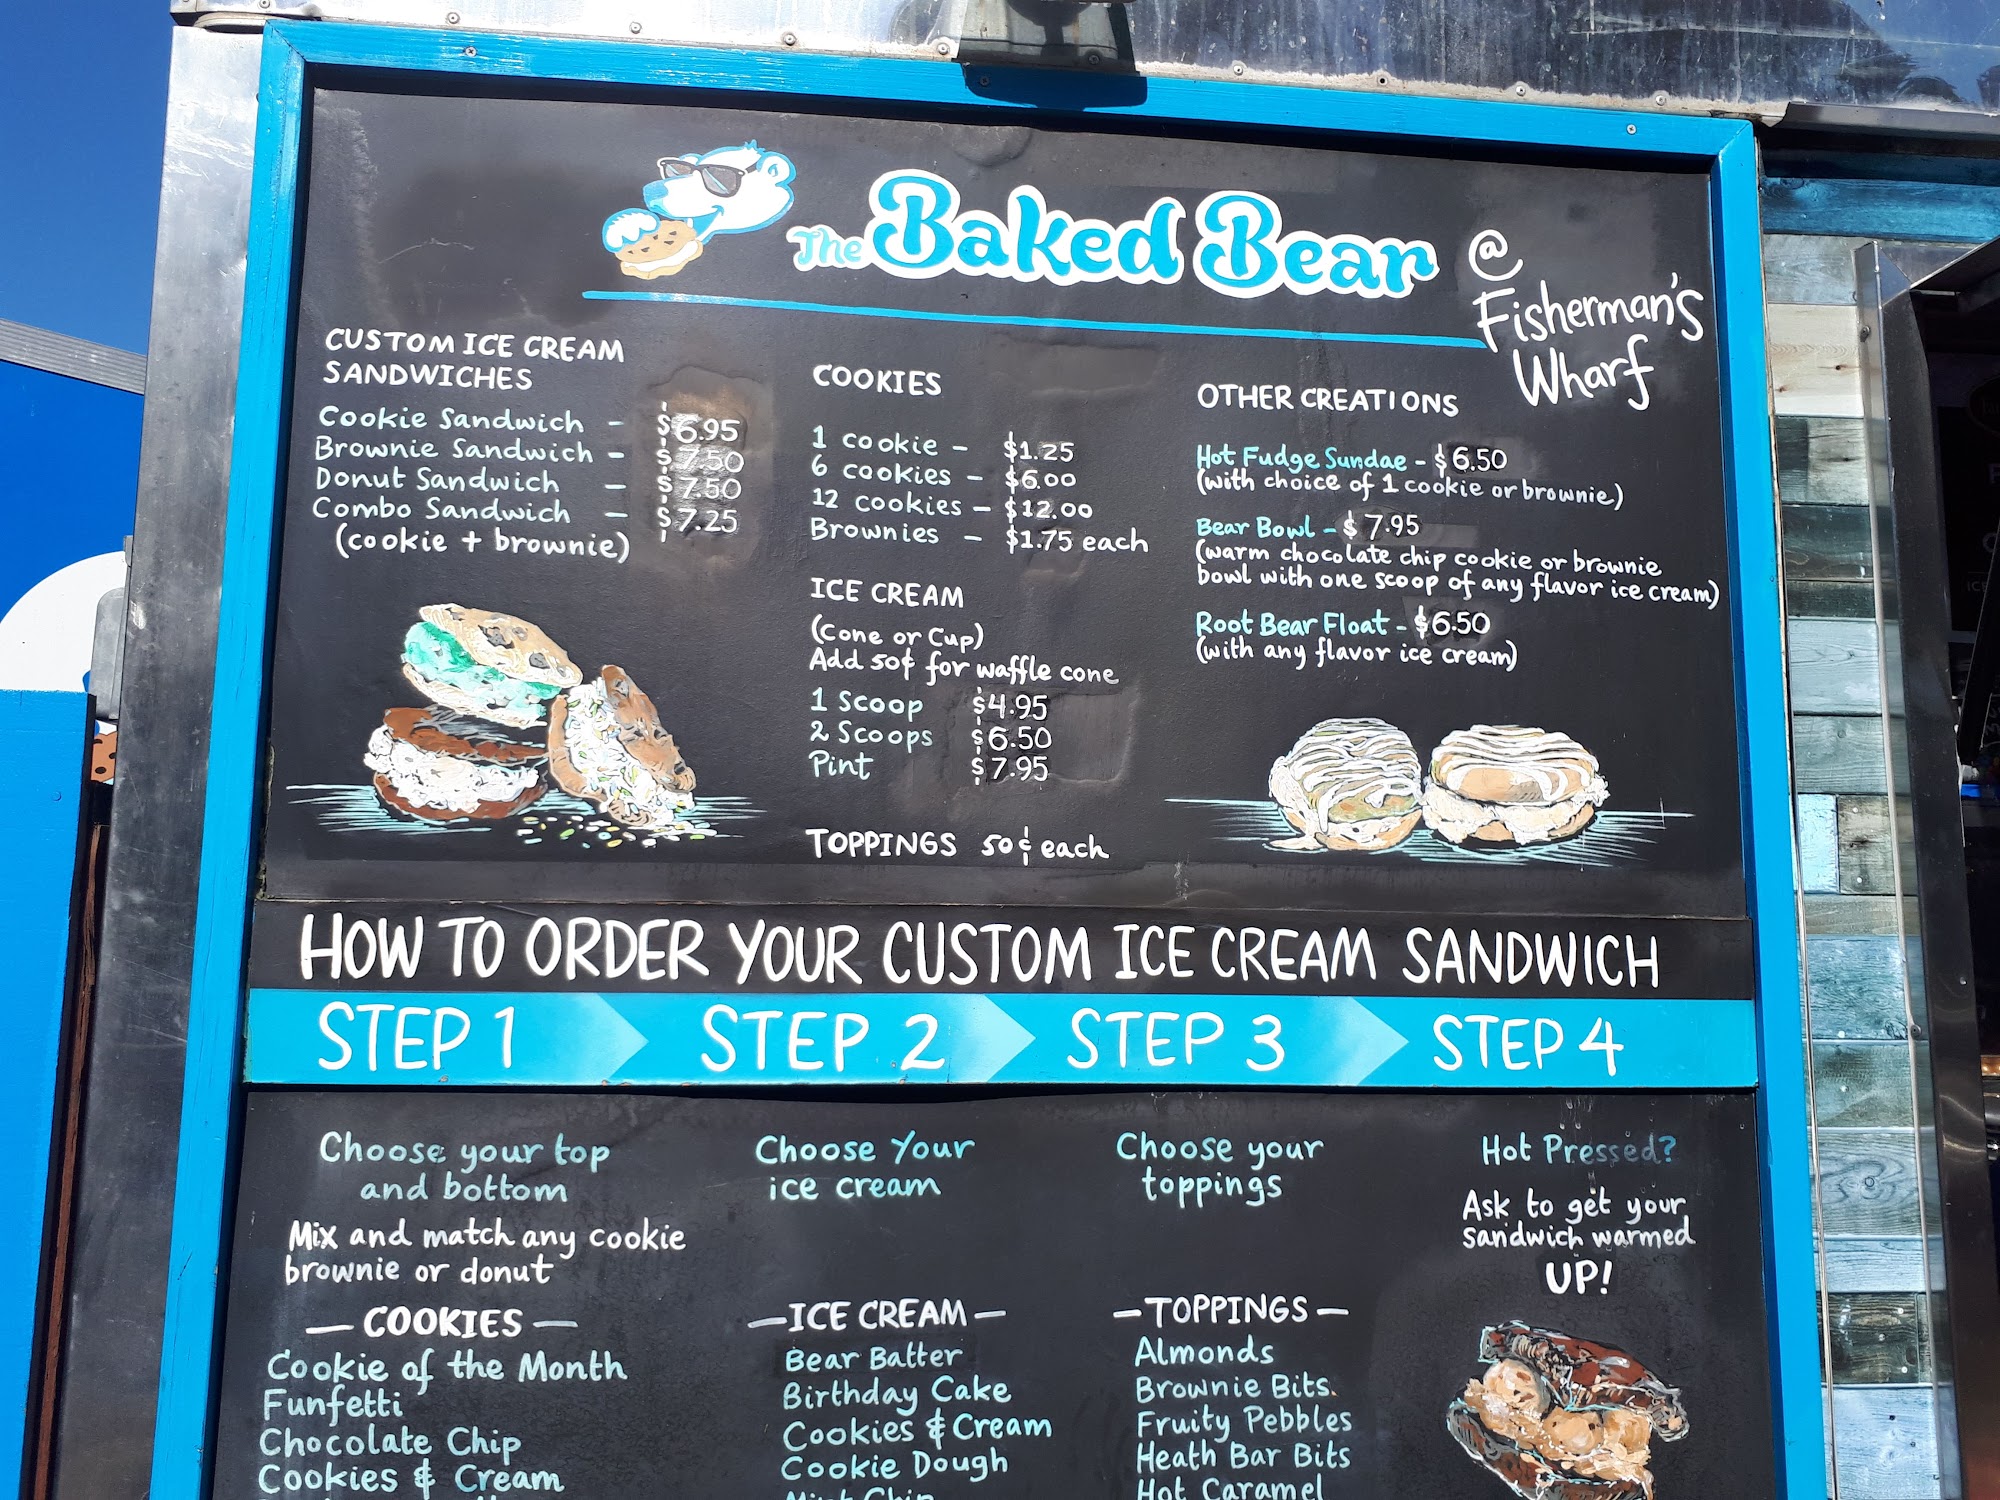 The Baked Bear
@
Fisherman's
Wharf
CUSTOM ICE CREAM
SANDWICHES
Cookie Sandwich - $6.95
Brownie Sandwich - $7.50
Donut Sandwich - $7.50
Combo Sandwich - $7.25
(cookie + brownie)
COOKIES
1 cookie - $1.25
6 cookies - $6.00
12 cookies - $12.00
Brownies - $1.75 each
ICE CREAM
(Cone or Cup)
Add 50¢ for waffle cone
1 Scoop $4.95
2 Scoops $6.50
Pint $7.95
TOPPINGS 50¢ each
OTHER CREATIONS
Hot Fudge Sundae - $6.50
(with choice of 1 cookie or brownie)
Bear Bowl - $7.95
(warm chocolate chip cookie or brownie
bowl with one scoop of any flavor ice cream)
Root Bear Float - $6.50
(with any flavor ice cream)
HOW TO ORDER YOUR CUSTOM ICE CREAM SANDWICH
STEP 1 STEP 2 STEP 3 STEP 4
Choose your top
and bottom
Mix and match any cookie
brownie or donut
— COOKIES —
Cookie of the Month
Funfetti
Chocolate Chip
Cookies & Cream
Choose Your
ice cream
— ICE CREAM —
Bear Batter
Birthday Cake
Cookies & Cream
Cookie Dough
Mint Chip
Choose your
toppings
— TOPPINGS —
Almonds
Brownie Bits
Fruity Pebbles
Heath Bar Bits
Hot Caramel
Hot Pressed?
Ask to get your
sandwich warmed
UP!